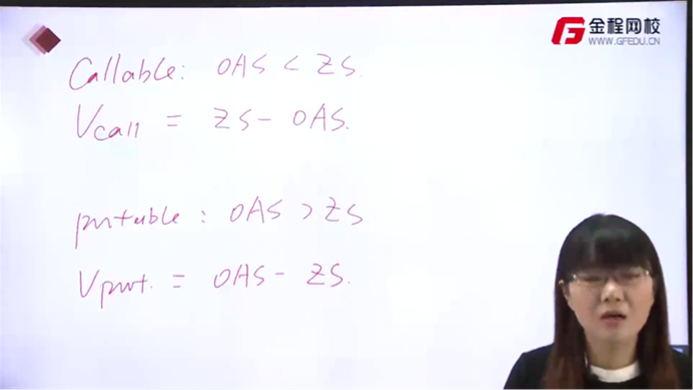 金程网校
WWW.GFEDU.CN
Callable: OAS < ZS.
Vcall = ZS - OAS.
putable: OAS > ZS
Vput. = OAS - ZS.